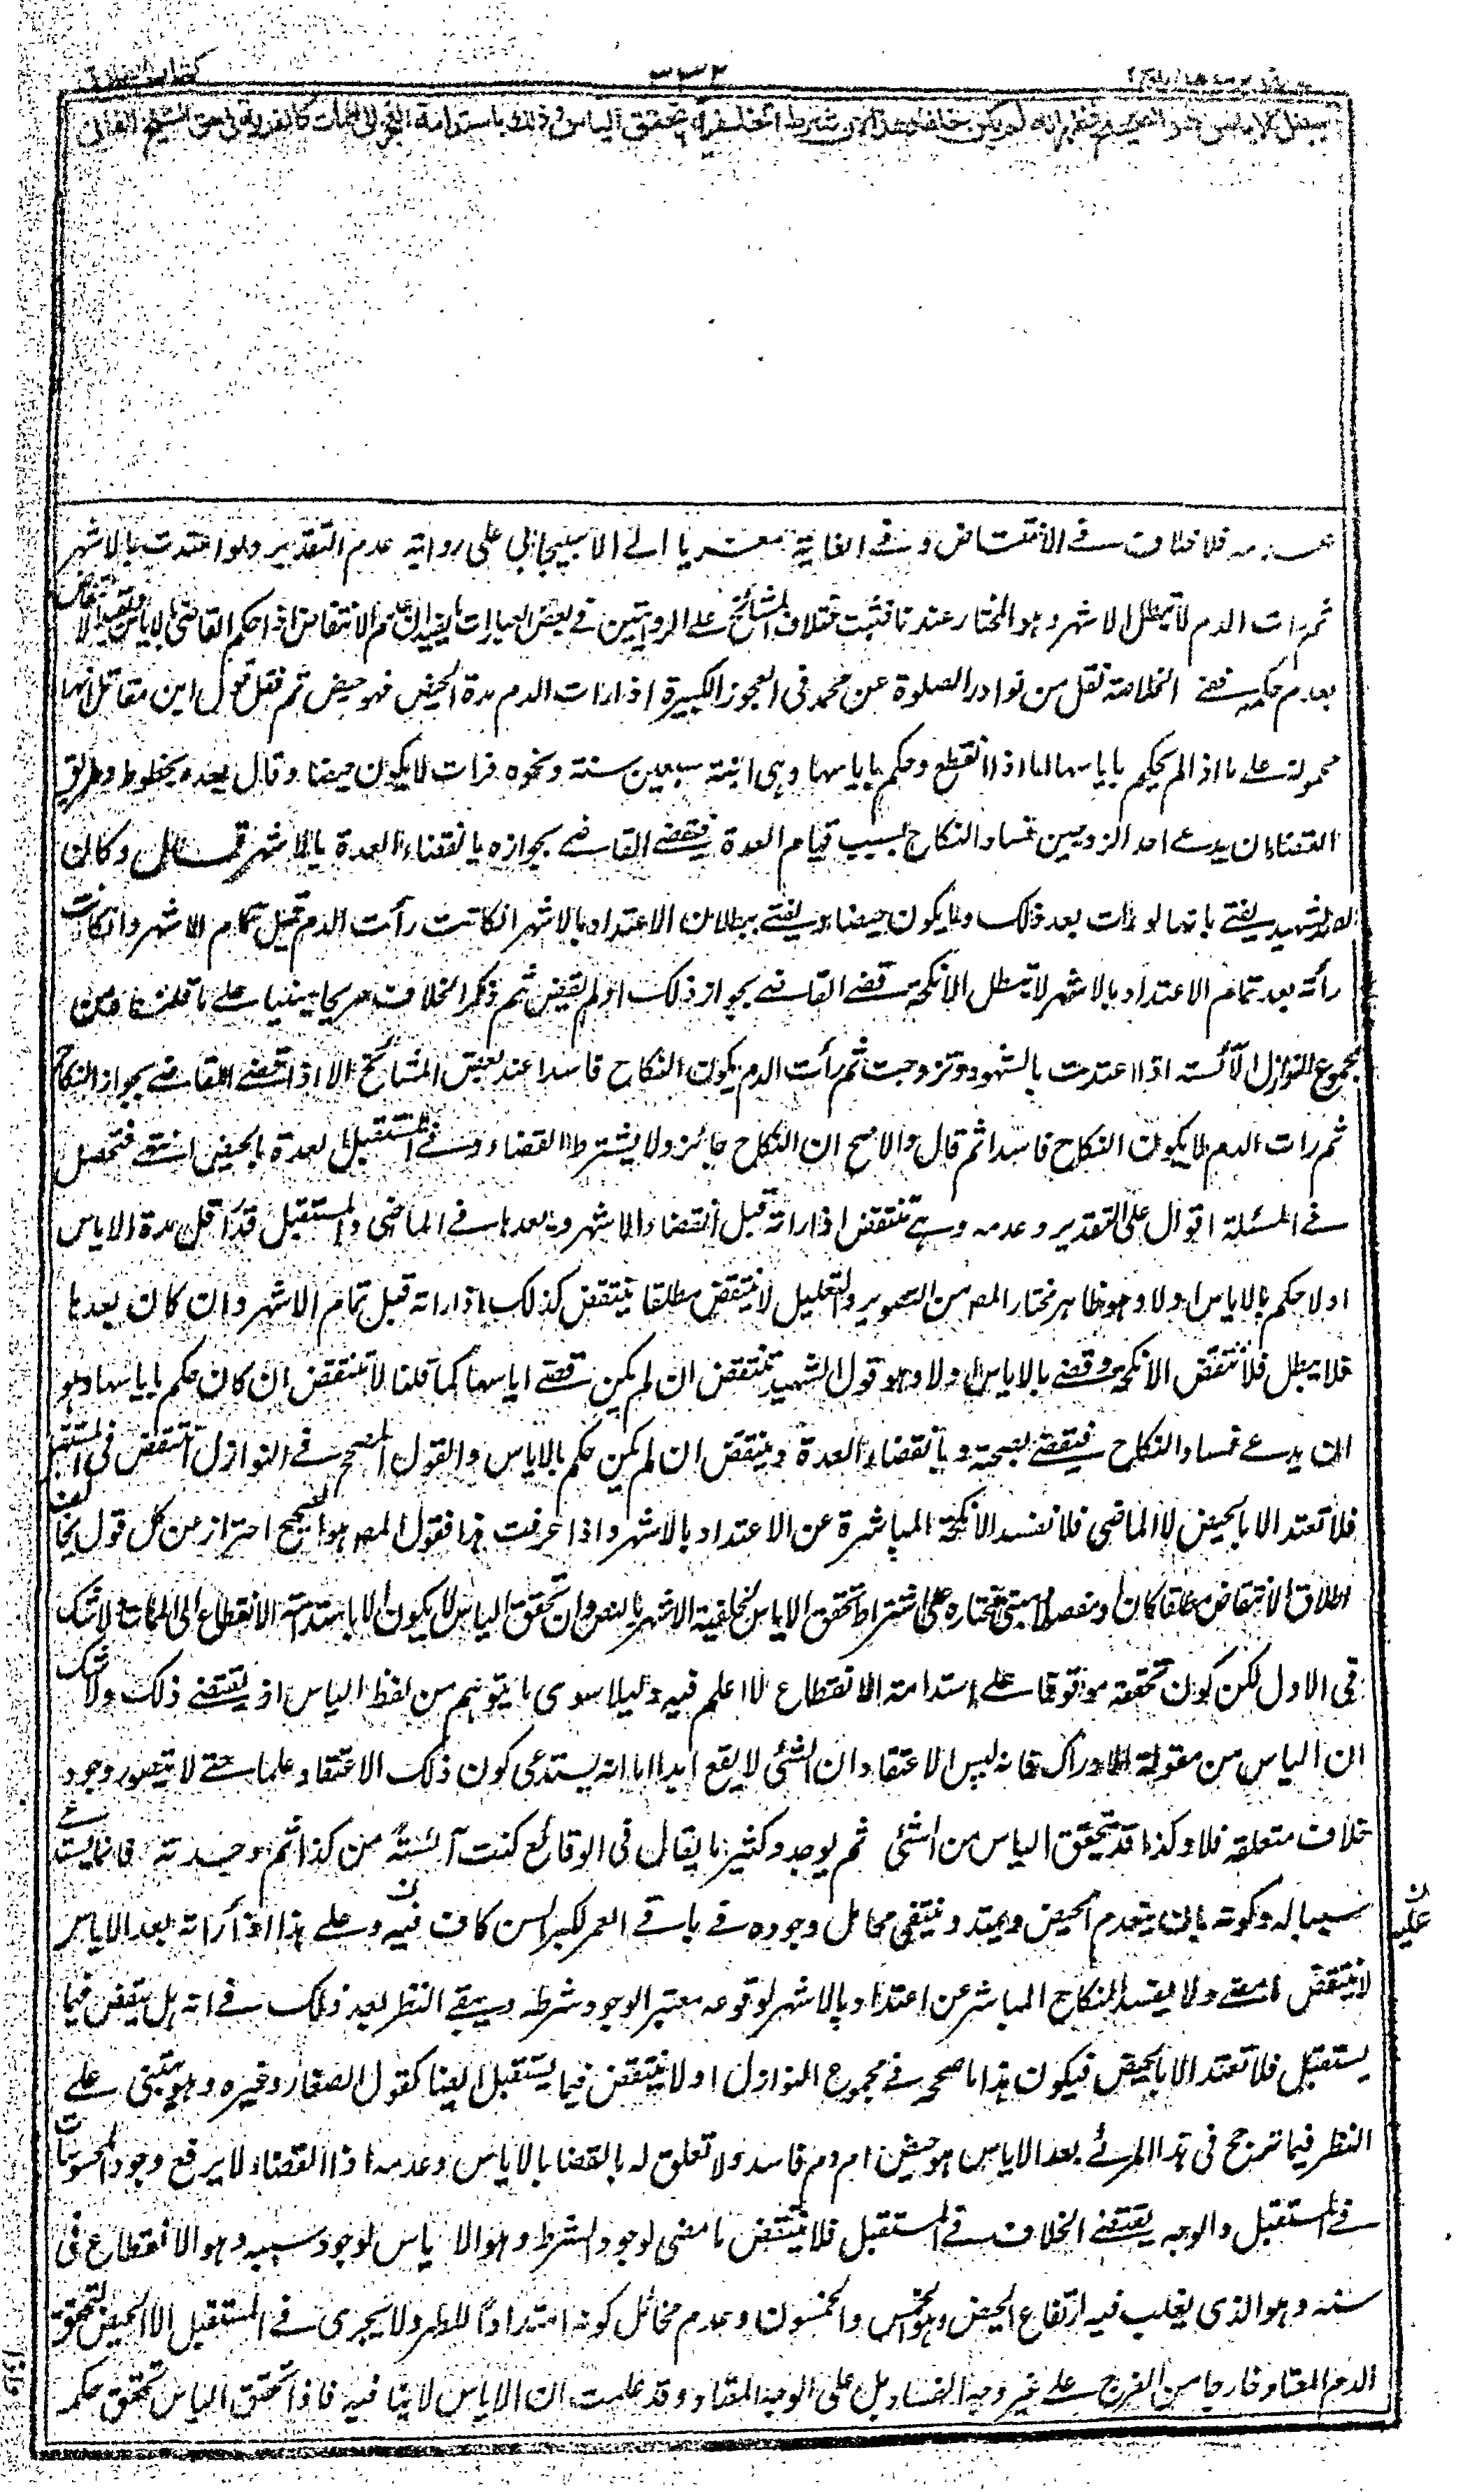 ٣٣٢
كتاب الطلاق
يبطل الاياس هو الصحيح فظهر انه لم يكن خلفا وهذا لان شرط الخلفية تحقق الياس وذلك باستدامة العجز الى الممات كالفدية فى حق الشيخ الفانى
عدمه فلا خلاف فے الانتقاض وفے الغاية معزيا الے الاسبيجابى على رواية عدم التقدير ولو اعتدت بالاشهر
ثم رات الدم لا تبطل الاشهر وهو المختار عندنا فثبت اختلاف المشائخ علے الروايتين فے بعض العبارات ما يفيد ان عدم الانتقاض اذا حكم القاضى بالاياس وتقييد الانتقاض
بعدم حكمه فے الخلاصة نقل من نوادر الصلوة عن محمد فى العجوز الكبيرة اذا رات الدم مدة الحيض فهو حيض ثم نقل قول ابن مقاتل انها
محمولة علے ما اذا لم يحكم باياسها اما اذا انقطع وحكم باياسها وهى ابنة سبعين سنة ونحوه فرات لا يكون حيضا وقال بعده بخطوط وطريق
القضاء ان يدعے احد الزوجين فساد النكاح بسبب قيام العدة فيقضے القاضے بجوازه بانقضاء العدة بالاشهر قال وكان
الصدر الشهيد يفتے بانها لو رات بعد ذلك دما يكون حيضا ويفتے ببطلان الاعتداد بالاشهر ان كانت رأت الدم قبل تمام الاشهر وان كانت
رأته بعد تمام الاعتداد بالاشهر لا تبطل الانكحة قضے القاضے بجواز ذلك او لم يقض ثم ذكر الخلاف صريحا مبنيا علے ما قلنا من
مجموع النوازل الآئسة اذا اعتدت بالشهور وتزوجت ثم رأت الدم يكون النكاح فاسدا عند بعض المشائخ الا اذا قضے القاضے بجواز النكاح
ثم رات الدم لا يكون النكاح فاسدا ثم قال والاصح ان النكاح جائز ولا يشترط القضاء وفے المستقبل العدة بالحيض انتهے فتحصل
فے المسئلة اقوال على التقدير وعدمه وهے تنتقض اذا راته قبل انقضاء الاشهر وبعدها فے الماضى والمستقبل قدر اقل مدة الاياس
اولا حكم بالاياس اولا وهو ظاهر مختار المصـ من التصوير والتعليل لا ينتقض مطلقا ينتقض كذلك اذا راته قبل تمام الاشهر وان كان بعدها
فلا يبطل فلا تنتقض الانكحة وقضے بالاياس اولا وهو قول الشهيد تنتقض ان لم يكن قضے اياسها كما قلنا لا تنتقض ان كان حكم باياسها وهو
ان يدعے فساد النكاح فيقضے بصحته وبانقضاء العدة وينتقض ان لم يكن حكم بالاياس والقول المصحح فے النوازل انتقض فى المستقبل
فلا تعتد الا بالحيض لا الماضى فلا تفسد الانكحة المباشرة عن الاعتداد بالاشهر واذا عرفت هذا فقول المصـ هو الصحيح احتراز عن كل قول يخالف
اطلاق الانتقاض مطلقا كان او مفصلا ومبنى مختاره على اشتراط تحقق الاياس لخلفية الاشهر بالنص وان تحقق الياس لا يكون الا باستدامة الانقطاع الى الممات ولا شك
فى الاول لكن كون تحققه موقوفا علے استدامة الانقطاع لا اعلم فيه دليلا سوى ما يتوهم من لفظ الياس اذ يقتضے ذلك ولا شك
ان الياس من مقولة الادراك فانه ليس الا اعتقاد ان الشئى لا يقع ابدا اما انه يستدعى كون ذلك الاعتقاد علما حتے لا يتصور وجود
خلاف متعلقه فلا وكذا قد يتحقق الياس من الشئى ثم يوجد وكثير ما يقال فى الوقائع كنت آيسته من كذا ثم وجدته فانما يستدعے
سببا له وكونه بان ينعدم الحيض ويمتد وينتفى مخائل وجوده فے باقے العمر لكبر السن كاف فيه وعلے هذا اذا رأته بعد الاياس
ن عليه
لا ينتقض ما مضے ولا يفسد النكاح المباشر عن اعتداد بالاشهر لوقوعه معتبرا لوجود شرطه ويبقے النظر بعد ذلك فے انه هل ينتقض فيما
يستقبل فلا تعتد الا بالحيض فيكون هذا ما صححه فے مجموع النوازل اولا ينتقض فيما يستقبل ايضا كقول الصفار وغيره وهو يبتنى علے
النظر فيما ترجح فى هذا المرئے بعد الاياس هو حيض ام دم فاسد ولا تعلق له بالقضا بالاياس وعدمه اذ القضاء لا يرفع وجود المحسوسات
فے المستقبل والوجه يقتضے الخلاف فے المستقبل فلا ينتقض ما مضى لوجود الشرط وهو الاياس لوجود سببه وهو الانقطاع فى
سنه وهو الذى يغلب فيه ارتفاع الحيض وهو الخمس والخمسون وعدم مخائل كونه امتدادا للطهر ولا يجرى فے المستقبل الا الحيض لتحقق
الدم المعتاد خارجا من الفرج علے غير وجه الفساد بل على الوجه المعتاد وقد علمت ان الاياس لا ينافيه فاذا تحقق الياس تحقق حكمه